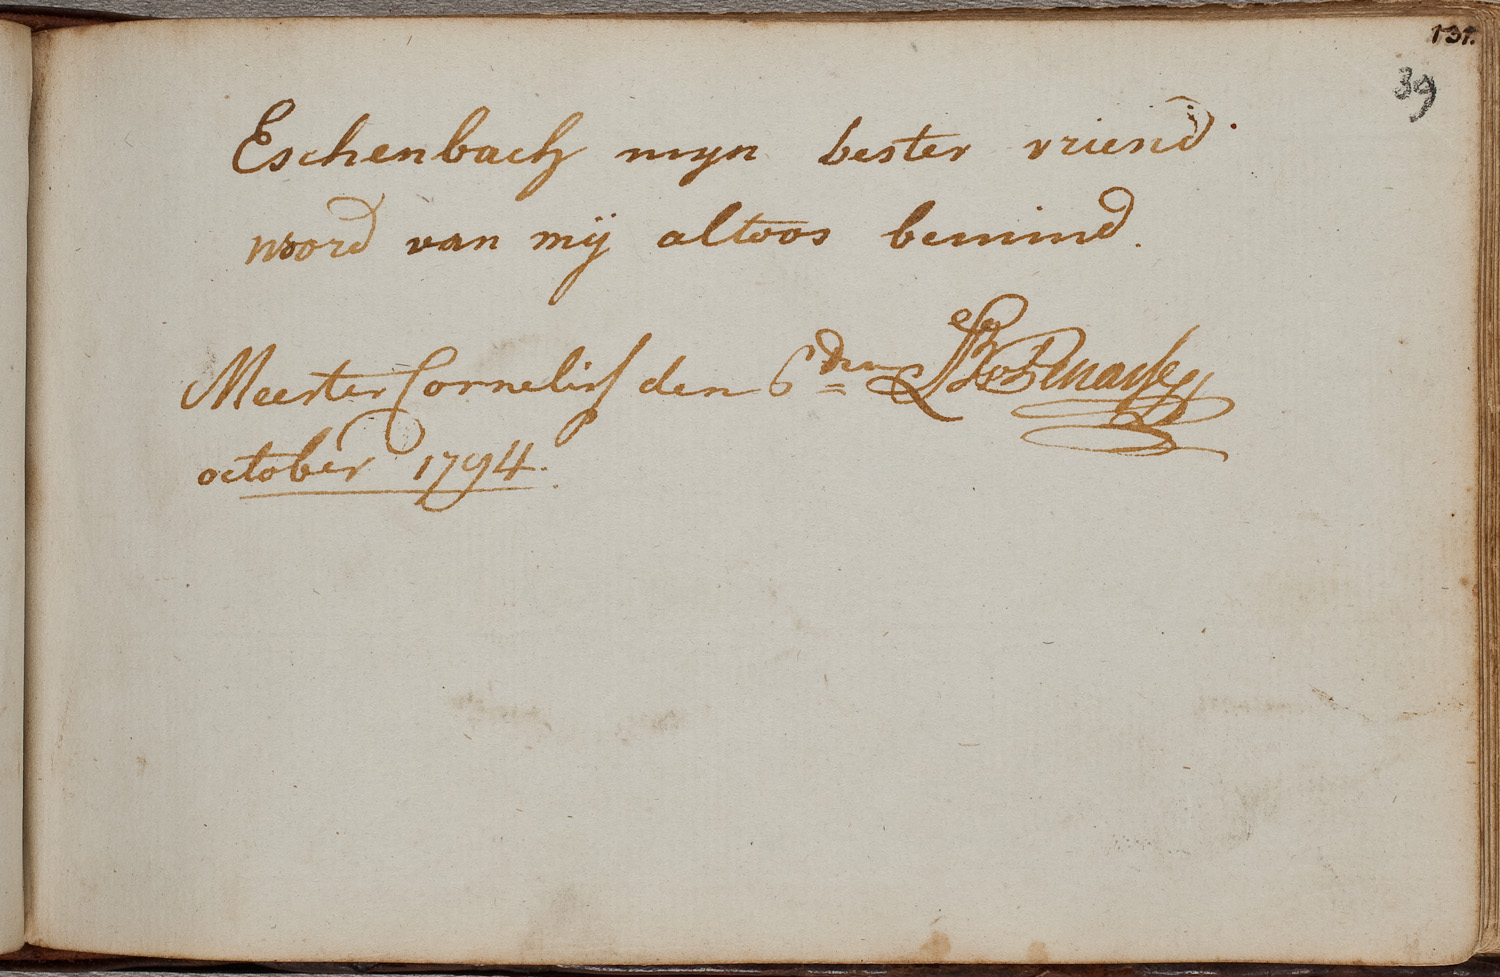 131.
39
Eschenbach myn bester vriend
word van mij altoos bemind.
Meester Cornelis den 6den
october 1794.